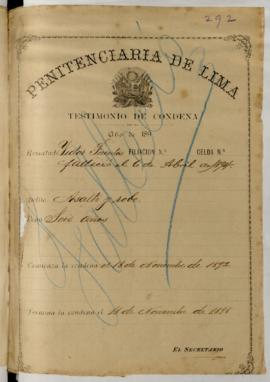 292
PENITENCIARIA DE LIMA
TESTIMONIO DE CONDENA
Año de 189
Rematado Victor FILIACION N.º CELDA N.º
falleció el 6 de Abril de 1894
Delito Asalto y robo
Pena Seis años
Comienza la condena el 18 de Noviembre de 1892
Termina la condena el 18 de Noviembre de 1898
EL SECRETARIO